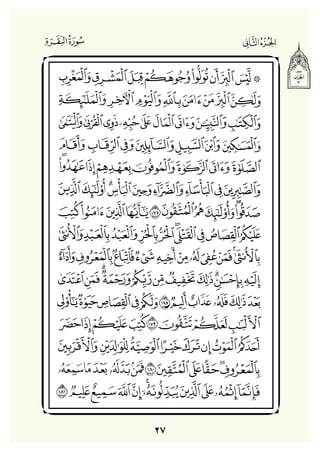 سُورَةُ البَقَرَةِ الجُزْءُ الثَّانِي
۞ لَّيْسَ ٱلْبِرَّ أَن تُوَلُّوا۟ وُجُوهَكُمْ قِبَلَ ٱلْمَشْرِقِ وَٱلْمَغْرِبِ
وَلَٰكِنَّ ٱلْبِرَّ مَنْ ءَامَنَ بِٱللَّهِ وَٱلْيَوْمِ ٱلْءَاخِرِ وَٱلْمَلَٰٓئِكَةِ
وَٱلْكِتَٰبِ وَٱلنَّبِيِّـۧنَ وَءَاتَى ٱلْمَالَ عَلَىٰ حُبِّهِۦ ذَوِى ٱلْقُرْبَىٰ وَٱلْيَتَٰمَىٰ
وَٱلْمَسَٰكِينَ وَٱبْنَ ٱلسَّبِيلِ وَٱلسَّآئِلِينَ وَفِى ٱلرِّقَابِ وَأَقَامَ
ٱلصَّلَوٰةَ وَءَاتَى ٱلزَّكَوٰةَ وَٱلْمُوفُونَ بِعَهْدِهِمْ إِذَا عَٰهَدُوا۟ ۖ
وَٱلصَّٰبِرِينَ فِى ٱلْبَأْسَآءِ وَٱلضَّرَّآءِ وَحِينَ ٱلْبَأْسِ ۗ أُو۟لَٰٓئِكَ ٱلَّذِينَ
صَدَقُوا۟ ۖ وَأُو۟لَٰٓئِكَ هُمُ ٱلْمُتَّقُونَ ١٧٧ يَٰٓأَيُّهَا ٱلَّذِينَ ءَامَنُوا۟ كُتِبَ
عَلَيْكُمُ ٱلْقِصَاصُ فِى ٱلْقَتْلَى ۖ ٱلْحُرُّ بِٱلْحُرِّ وَٱلْعَبْدُ بِٱلْعَبْدِ وَٱلْأُنثَىٰ
بِٱلْأُنثَىٰ ۚ فَمَنْ عُفِىَ لَهُۥ مِنْ أَخِيهِ شَىْءٌ فَٱتِّبَاعٌۢ بِٱلْمَعْرُوفِ وَأَدَآءٌ
إِلَيْهِ بِإِحْسَٰنٍ ۗ ذَٰلِكَ تَخْفِيفٌ مِّن رَّبِّكُمْ وَرَحْمَةٌ ۗ فَمَنِ ٱعْتَدَىٰ
بَعْدَ ذَٰلِكَ فَلَهُۥ عَذَابٌ أَلِيمٌ ١٧٨ وَلَكُمْ فِى ٱلْقِصَاصِ حَيَوٰةٌ يَٰٓأُو۟لِى
ٱلْأَلْبَٰبِ لَعَلَّكُمْ تَتَّقُونَ ١٧٩ كُتِبَ عَلَيْكُمْ إِذَا حَضَرَ
أَحَدَكُمُ ٱلْمَوْتُ إِن تَرَكَ خَيْرًا ٱلْوَصِيَّةُ لِلْوَٰلِدَيْنِ وَٱلْأَقْرَبِينَ
بِٱلْمَعْرُوفِ ۖ حَقًّا عَلَى ٱلْمُتَّقِينَ ١٨٠ فَمَنۢ بَدَّلَهُۥ بَعْدَ مَا سَمِعَهُۥ
فَإِنَّمَآ إِثْمُهُۥ عَلَى ٱلَّذِينَ يُبَدِّلُونَهُۥٓ ۚ إِنَّ ٱللَّهَ سَمِيعٌ عَلِيمٌ ١٨١
٢٧